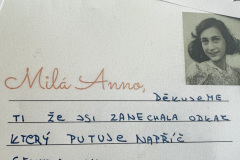 Milá Anno,
DĚKUJEME
TI ŽE JSI ZANECHALA ODKAZ
KTERÝ PUTUJE NAPŘÍČ